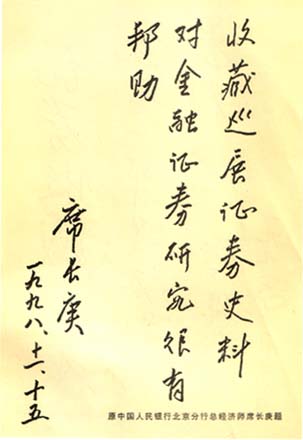 收藏巡展证券史料
对金融证券研究很有
邦助
席长庚
一九九八、十一、十五
原中国人民银行北京分行总经济师席长庚题